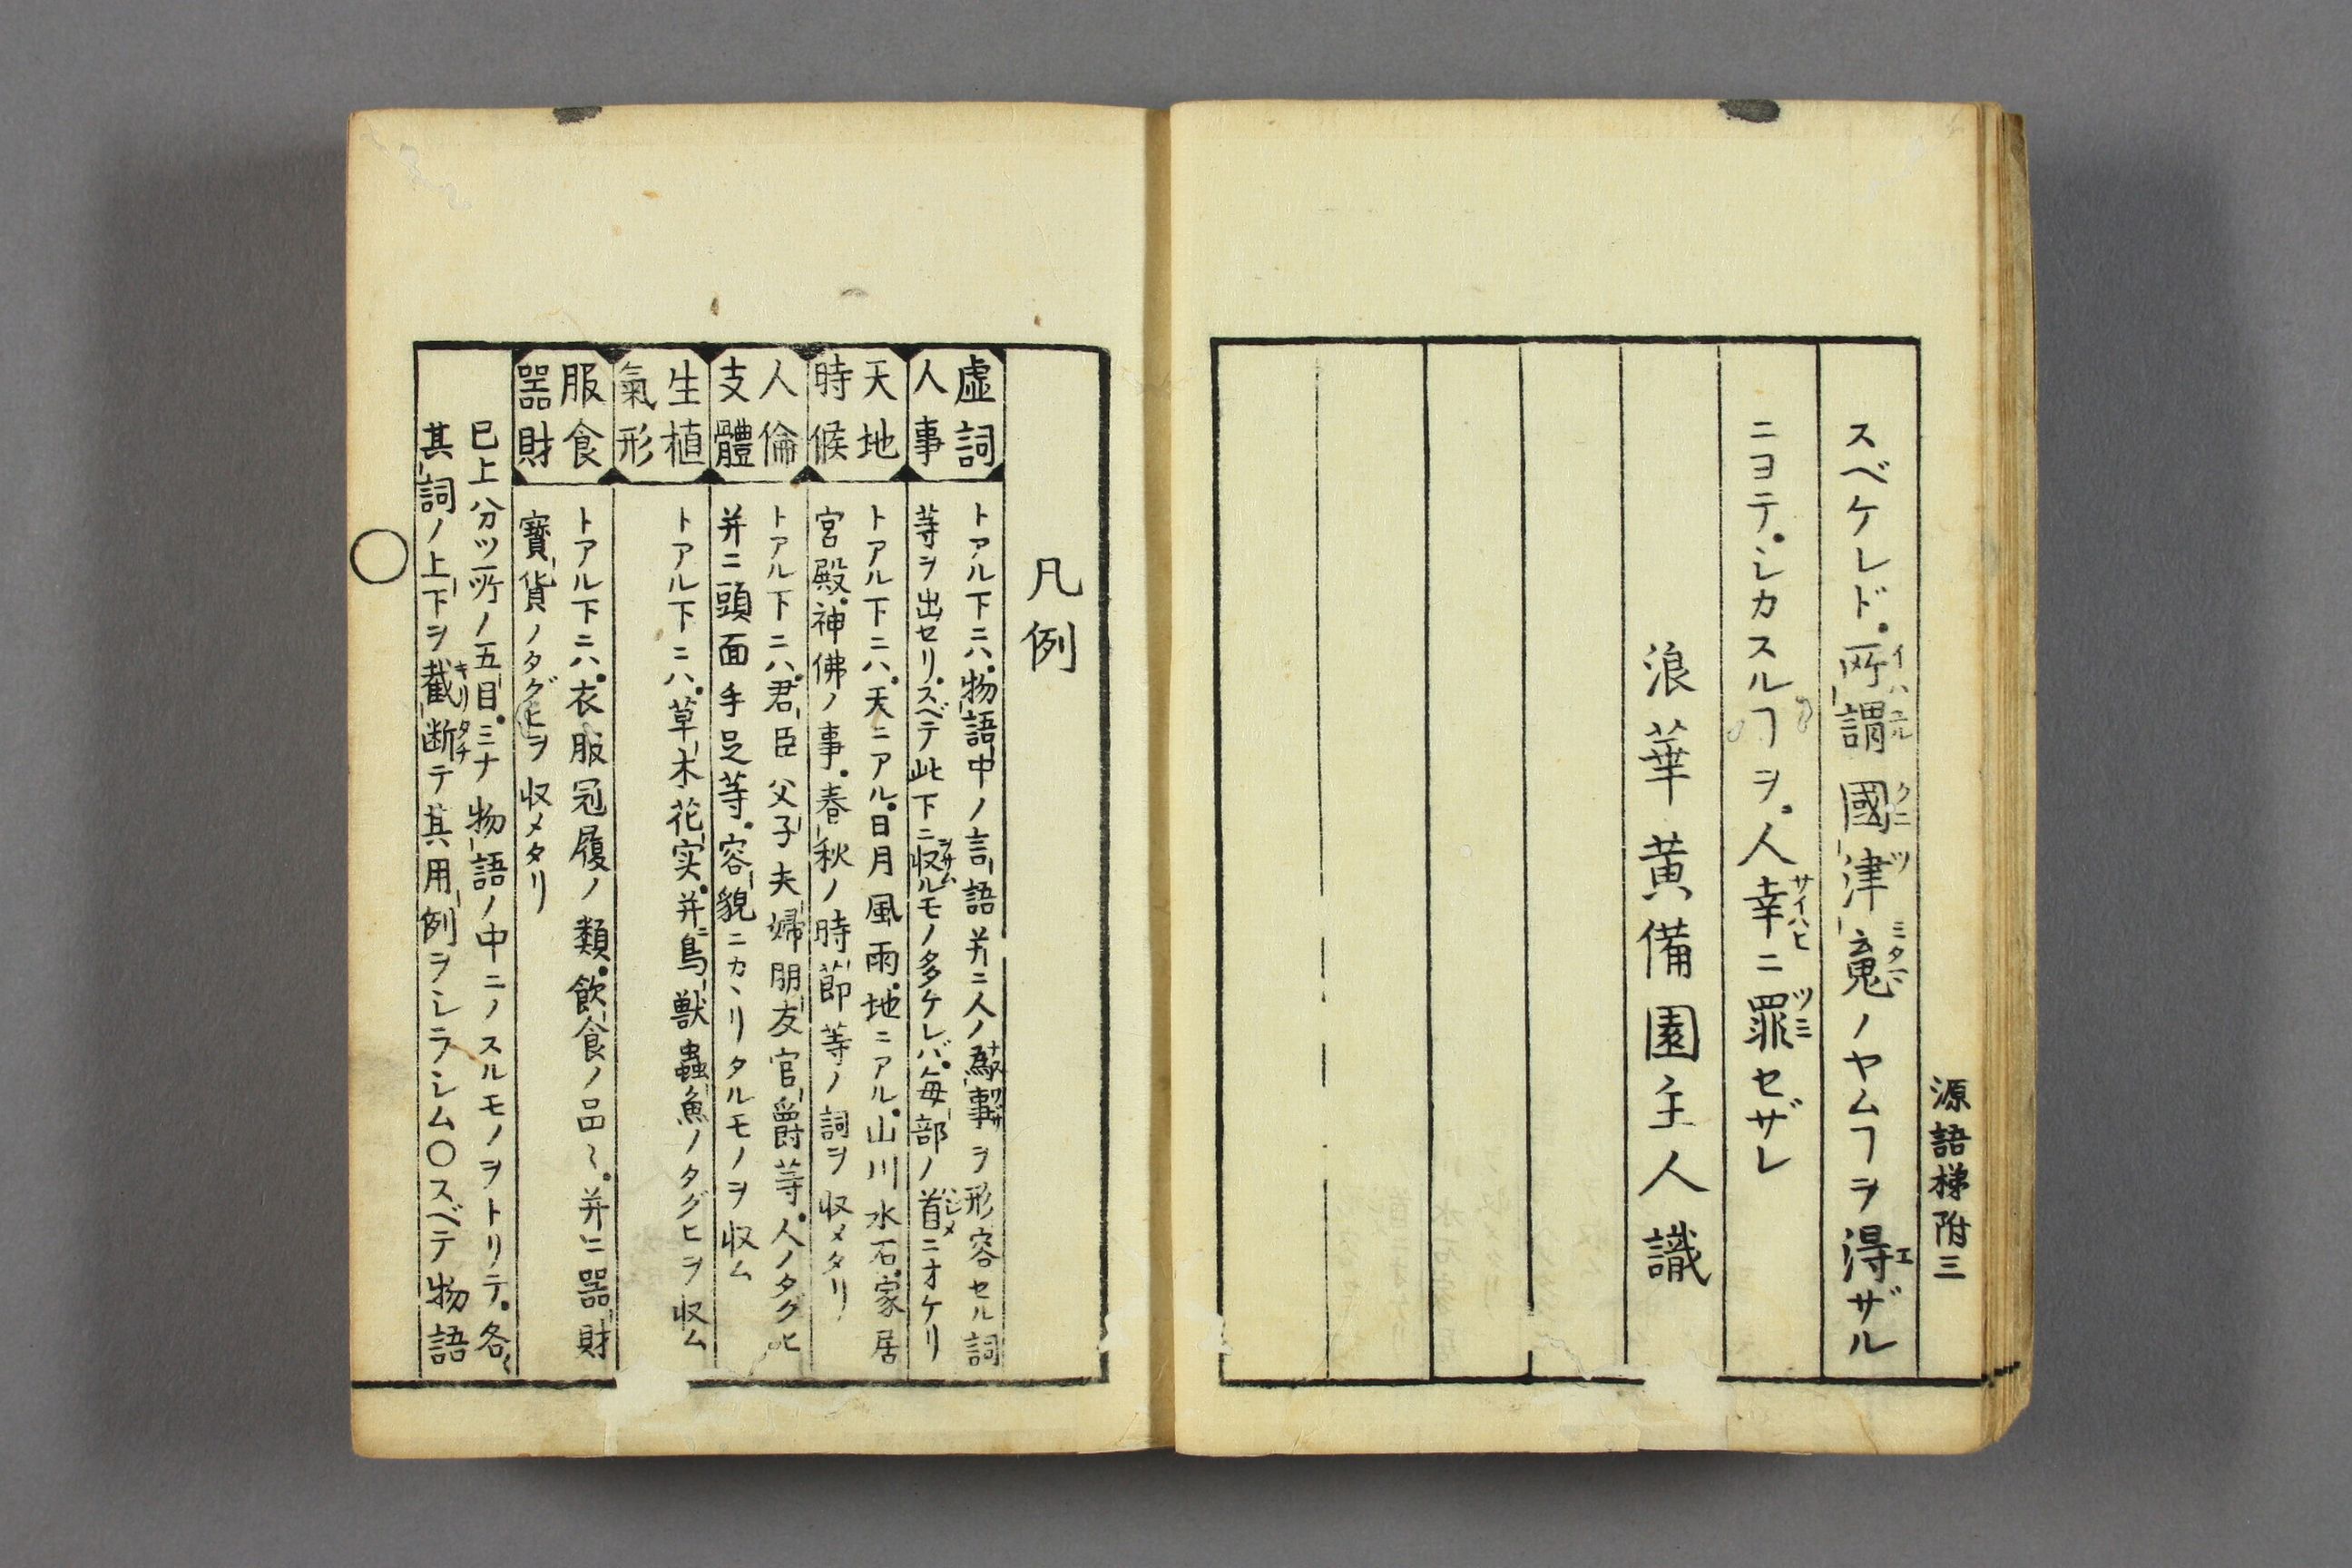 源語梯附三
スベケレド。所謂國津魂ノヤムヿヲ得ザル
イハユル クニ ツ ミタマ エ
ニヨテ。シカスルヿヲ。人幸ニ罪セザレ
サイハヒ ツミ
浪華黄備園主人識
凡例
虚詞
人事
トアル下ニハ。物語中ノ言語并ニ人ノ事ヲ形容セル詞
等ヲ出セリ。スベテ此下ニ収ルモノ多ケレバ。毎部ノ首ニオケリ
ヲサム ハジメ
天地
時候
トアル下ニハ。天ニアル。日月風雨。地ニアル。山川水石。家居
宮殿。神佛ノ事。春秋ノ時節等ノ詞ヲ収メタリ
人倫
支體
トアル下ニハ。君臣父子夫婦朋友官爵等。人ノタグヒ
并ニ頭面手足等。容貌ニカヽリタルモノヲ収ム
生植
氣形
トアル下ニハ。草木花実。并ニ鳥獣蟲魚ノタグヒヲ収ム
服食
器財
トアル下ニハ。衣服冠履ノ類。飲食ノ品〻。并ニ器財
寳貨ノタグヒヲ収メタリ
已上分ツ所ノ五目。ミナ物語ノ中ニノスルモノヲトリテ。各〻
其詞ノ上下ヲ截断テ其用例ヲシラシム〇スベテ物語
キリ タチ